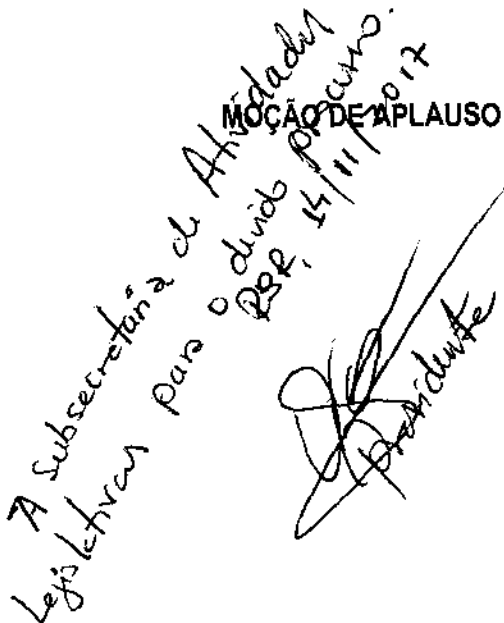 MOÇÃO DE APLAUSO
À Subsecretaria de Atividades
Legislativas para o devido processo.
RBR, 14/11/2017
presidente